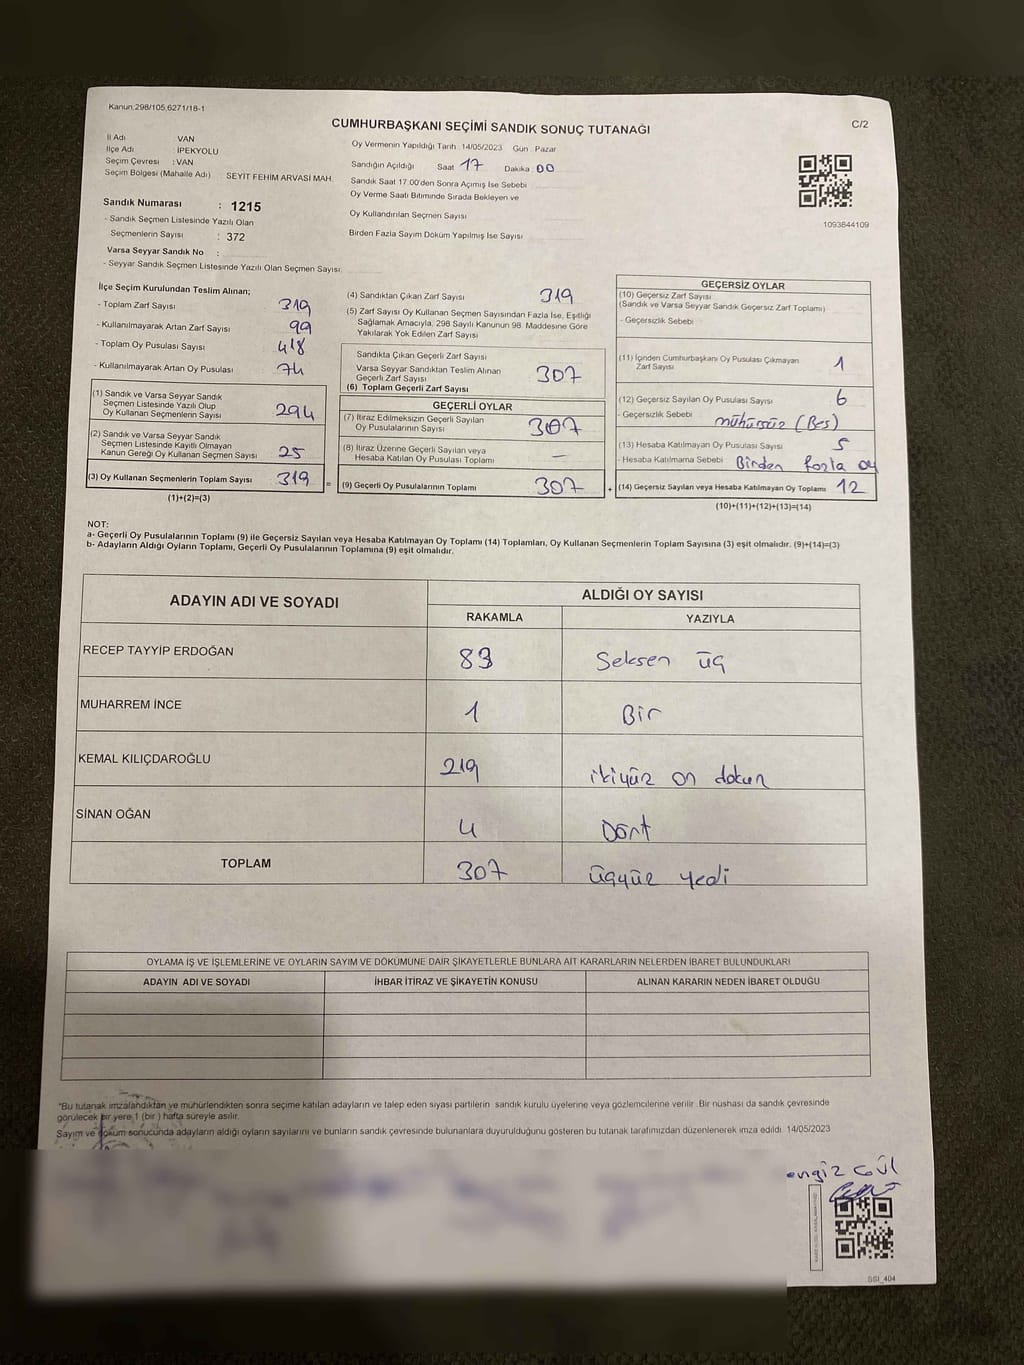 Kanun,298/105,6271/18-1
CUMHURBAŞKANI SEÇİMİ SANDIK SONUÇ TUTANAĞI
C/2
İl Adı VAN
İlçe Adı İPEKYOLU
Seçim Çevresi : VAN
Seçim Bölgesi (Mahalle Adı) SEYİT FEHİM ARVASİ MAH.
Sandık Numarası : 1215
- Sandık Seçmen Listesinde Yazılı Olan
Seçmenlerin Sayısı : 372
Varsa Seyyar Sandık No :
- Seyyar Sandık Seçmen Listesinde Yazılı Olan Seçmen Sayısı:
Oy Vermenin Yapıldığı Tarih :14/05/2023 Gün : Pazar
Sandığın Açıldığı Saat 17 Dakika : 00
Sandık Saat 17.00'den Sonra Açımış İse Sebebi
Oy Verme Saati Bitiminde Sırada Bekleyen ve
Oy Kullandırılan Seçmen Sayısı
Birden Fazla Sayım Döküm Yapılmış İse Sayısı
1093844109
İlçe Seçim Kurulundan Teslim Alınan;
- Toplam Zarf Sayısı 319
- Kullanılmayarak Artan Zarf Sayısı 99
- Toplam Oy Pusulası Sayısı 418
- Kullanılmayarak Artan Oy Pusulası 74
(1) Sandık ve Varsa Seyyar Sandık
Seçmen Listesinde Yazılı Olup
Oy Kullanan Seçmenlerin Sayısı 294
(2) Sandık ve Varsa Seyyar Sandık
Seçmen Listesinde Kayıtlı Olmayan
Kanun Gereği Oy Kullanan Seçmen Sayısı 25
(3) Oy Kullanan Seçmenlerin Toplam Sayısı 319
(1)+(2)=(3)
(4) Sandıktan Çıkan Zarf Sayısı 319
(5) Zarf Sayısı Oy Kullanan Seçmen Sayısından Fazla İse, Eşitliği
Sağlamak Amacıyla, 298 Sayılı Kanunun 98. Maddesine Göre
Yakılarak Yok Edilen Zarf Sayısı
Sandıkta Çıkan Geçerli Zarf Sayısı
Varsa Seyyar Sandıktan Teslim Alınan
Geçerli Zarf Sayısı 307
(6) Toplam Geçerli Zarf Sayısı
GEÇERLİ OYLAR
(7) İtiraz Edilmeksizin Geçerli Sayılan
Oy Pusulalarının Sayısı 307
(8) İtiraz Üzerine Geçerli Sayılan veya
Hesaba Katılan Oy Pusulası Toplamı —
= (9) Geçerli Oy Pusulalarının Toplamı 307 +
GEÇERSİZ OYLAR
(10) Geçersiz Zarf Sayısı
(Sandık ve Varsa Seyyar Sandık Geçersiz Zarf Toplamı)
- Geçersizlik Sebebi
(11) İçinden Cumhurbaşkanı Oy Pusulası Çıkmayan
Zarf Sayısı 1
(12) Geçersiz Sayılan Oy Pusulası Sayısı 6
- Geçersizlik Sebebi mühürsüz (Beş)
(13) Hesaba Katılmayan Oy Pusulası Sayısı 5
- Hesaba Katılmama Sebebi Birden fazla oy
(14) Geçersiz Sayılan veya Hesaba Katılmayan Oy Toplamı 12
(10)+(11)+(12)+(13)=(14)
NOT:
a- Geçerli Oy Pusulalarının Toplamı (9) ile Geçersiz Sayılan veya Hesaba Katılmayan Oy Toplamı (14) Toplamları, Oy Kullanan Seçmenlerin Toplam Sayısına (3) eşit olmalıdır. (9)+(14)=(3)
b- Adayların Aldığı Oyların Toplamı, Geçerli Oy Pusulalarının Toplamına (9) eşit olmalıdır.
ADAYIN ADI VE SOYADI ALDIĞI OY SAYISI
RAKAMLA YAZIYLA
RECEP TAYYİP ERDOĞAN 83 Seksen üç
MUHARREM İNCE 1 Bir
KEMAL KILIÇDAROĞLU 219 ikiyüz on dokun
SİNAN OĞAN 4 Dört
TOPLAM 307 üçyüz yedi
OYLAMA İŞ VE İŞLEMLERİNE VE OYLARIN SAYIM VE DÖKÜMÜNE DAİR ŞİKAYETLERLE BUNLARA AİT KARARLARIN NELERDEN İBARET BULUNDUKLARI
ADAYIN ADI VE SOYADI İHBAR İTİRAZ VE ŞİKAYETİN KONUSU ALINAN KARARIN NEDEN İBARET OLDUĞU
*Bu tutanak imzalandıktan ve mühürlendikten sonra seçime katılan adayların ve talep eden siyasi partilerin sandık kurulu üyelerine veya gözlemcilerine verilir. Bir nüshası da sandık çevresinde
görülecek bir yere 1 (bir ) hafta süreyle asılır.
Sayım ve döküm sonucunda adayların aldığı oyların sayılarını ve bunların sandık çevresinde bulunanlara duyurulduğunu gösteren bu tutanak tarafımızdan düzenlenerek imza edildi. 14/05/2023
engiz Gül
SSI_404